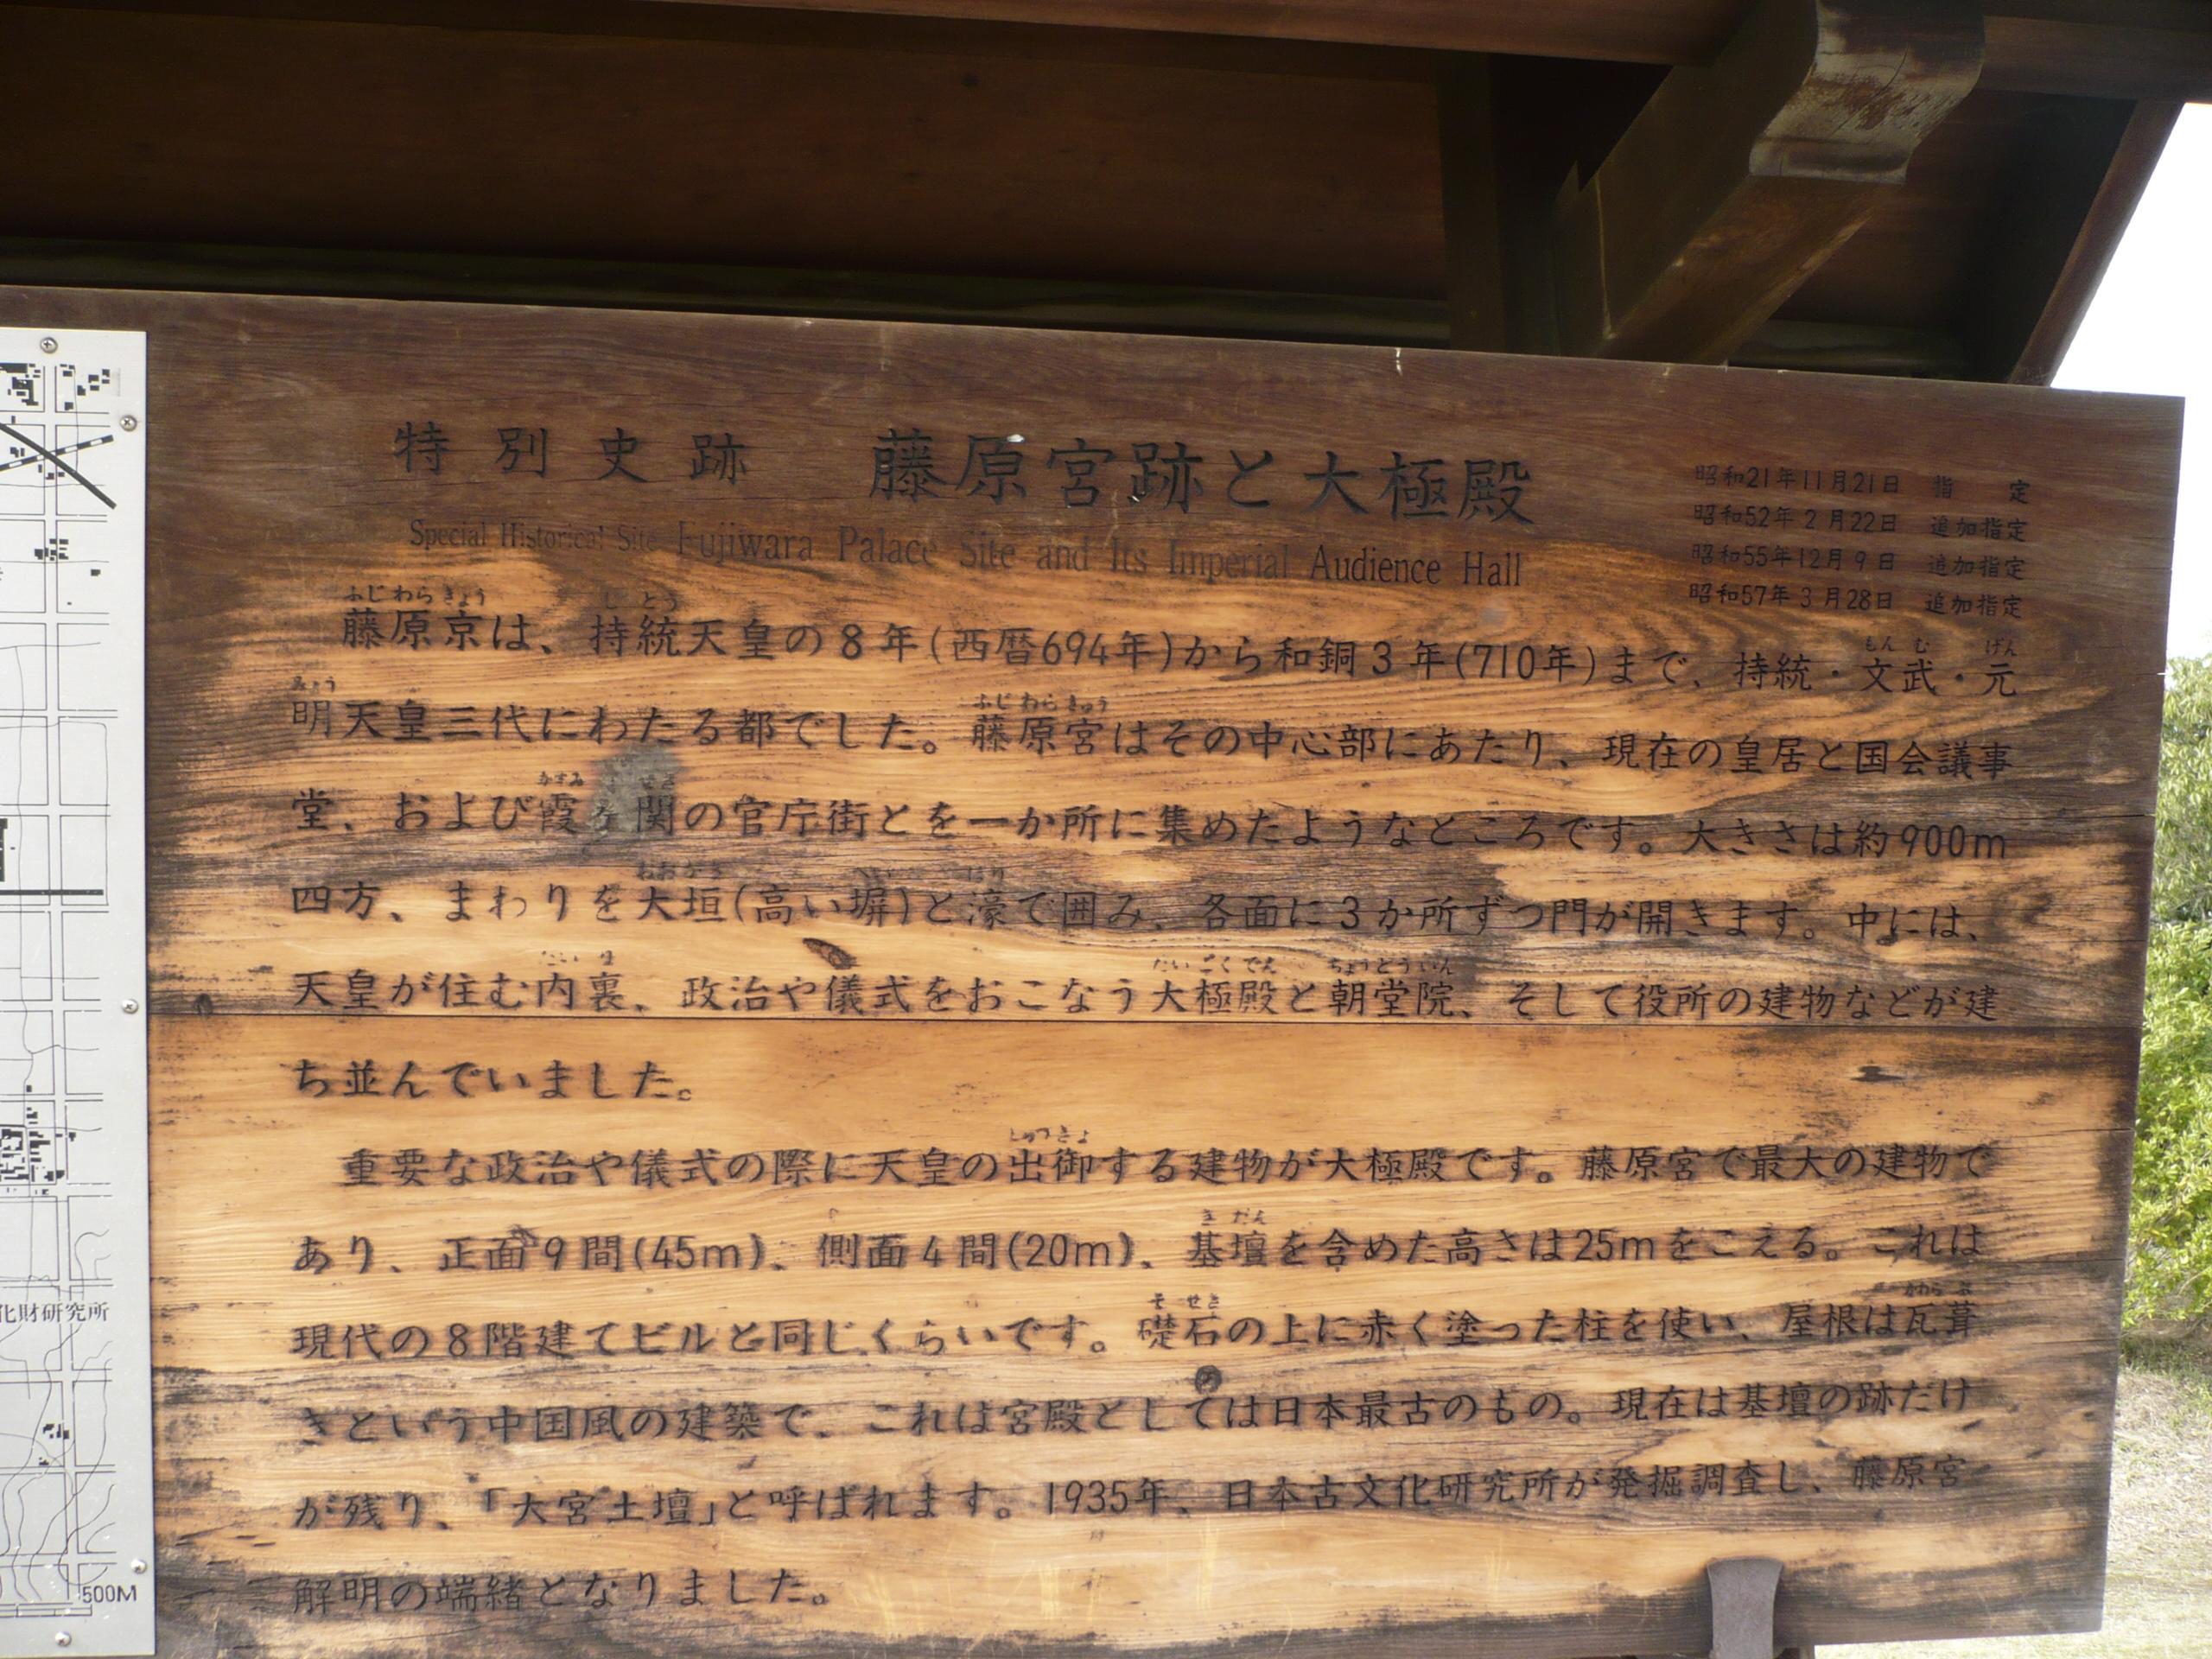 特別史跡 藤原宮跡と大極殿
Special Historical Site Fujiwara Palace Site and Its Imperial Audience Hall
昭和21年11月21日 指 定
昭和52年2月22日 追加指定
昭和55年12月9日 追加指定
昭和57年3月28日 追加指定
ふじわらきょう じとう もんむ げん
藤原京は、持統天皇の8年(西暦694年)から和銅3年(710年)まで、持統・文武・元
みょう ふじわらきゅう
明天皇三代にわたる都でした。藤原宮はその中心部にあたり、現在の皇居と国会議事
かすみ せき
堂、および霞ヶ関の官庁街とを一か所に集めたようなところです。大きさは約900m
おおがき へい ほり
四方、まわりを大垣(高い塀)と濠で囲み、各面に3か所ずつ門が開きます。中には、
だいり だいごくでん ちょうどういん
天皇が住む内裏、政治や儀式をおこなう大極殿と朝堂院、そして役所の建物などが建
ち並んでいました。
しゅつぎょ
重要な政治や儀式の際に天皇の出御する建物が大極殿です。藤原宮で最大の建物で
きだん
あり、正面9間(45m)、側面4間(20m)、基壇を含めた高さは25mをこえる。これは
そせき かわらぶ
現代の8階建てビルと同じくらいです。礎石の上に赤く塗った柱を使い、屋根は瓦葺
きという中国風の建築で、これは宮殿としては日本最古のもの。現在は基壇の跡だけ
が残り、「大宮土壇」と呼ばれます。1935年、日本古文化研究所が発掘調査し、藤原宮
解明の端緒となりました。
化財研究所
500M